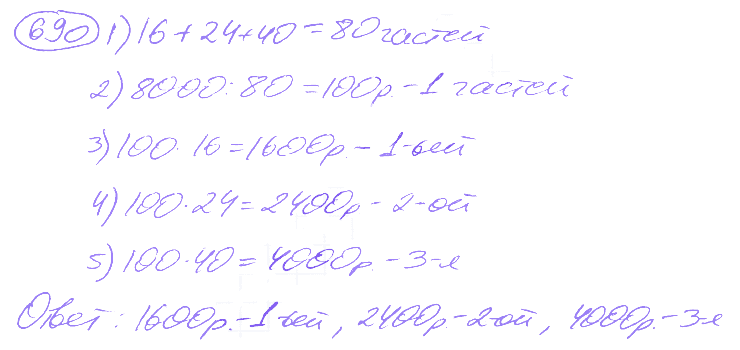 690 1) 16 + 24 + 40 = 80 частей
2) 8000 : 80 = 100р. - 1 частей
3) 100 · 16 = 1600р. - 1-ьей
4) 100 · 24 = 2400р - 2-ой
5) 100 · 40 = 4000р - 3-я
Ответ : 1600р. - 1 ьей, 2400р. - 2-ой, 4000р. - 3-я